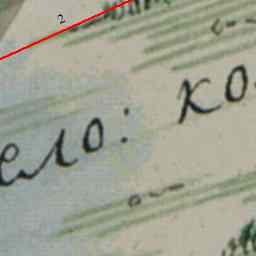 2
ело: ко